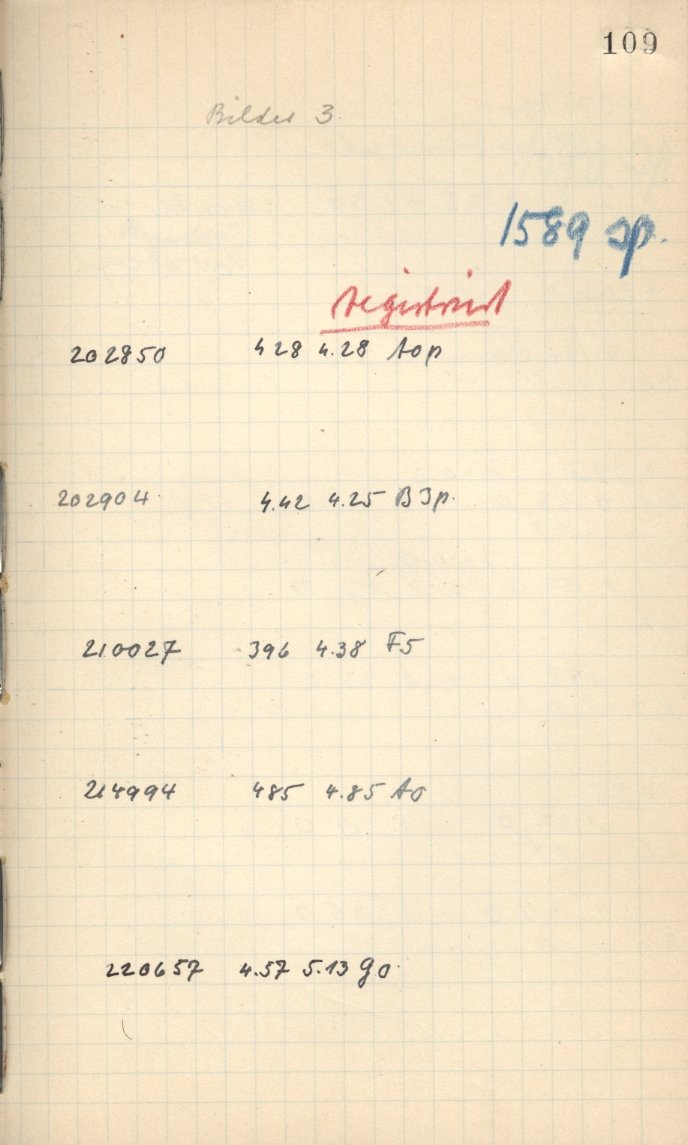 109
Bilder 3
1589 sp.
registriert
202850 428 4.28 Aop
202904. 4.42 4.25 B3p.
210027 396 4.38 F5
214994 485 4.85 Ao
220657 4.57 5.13 go.